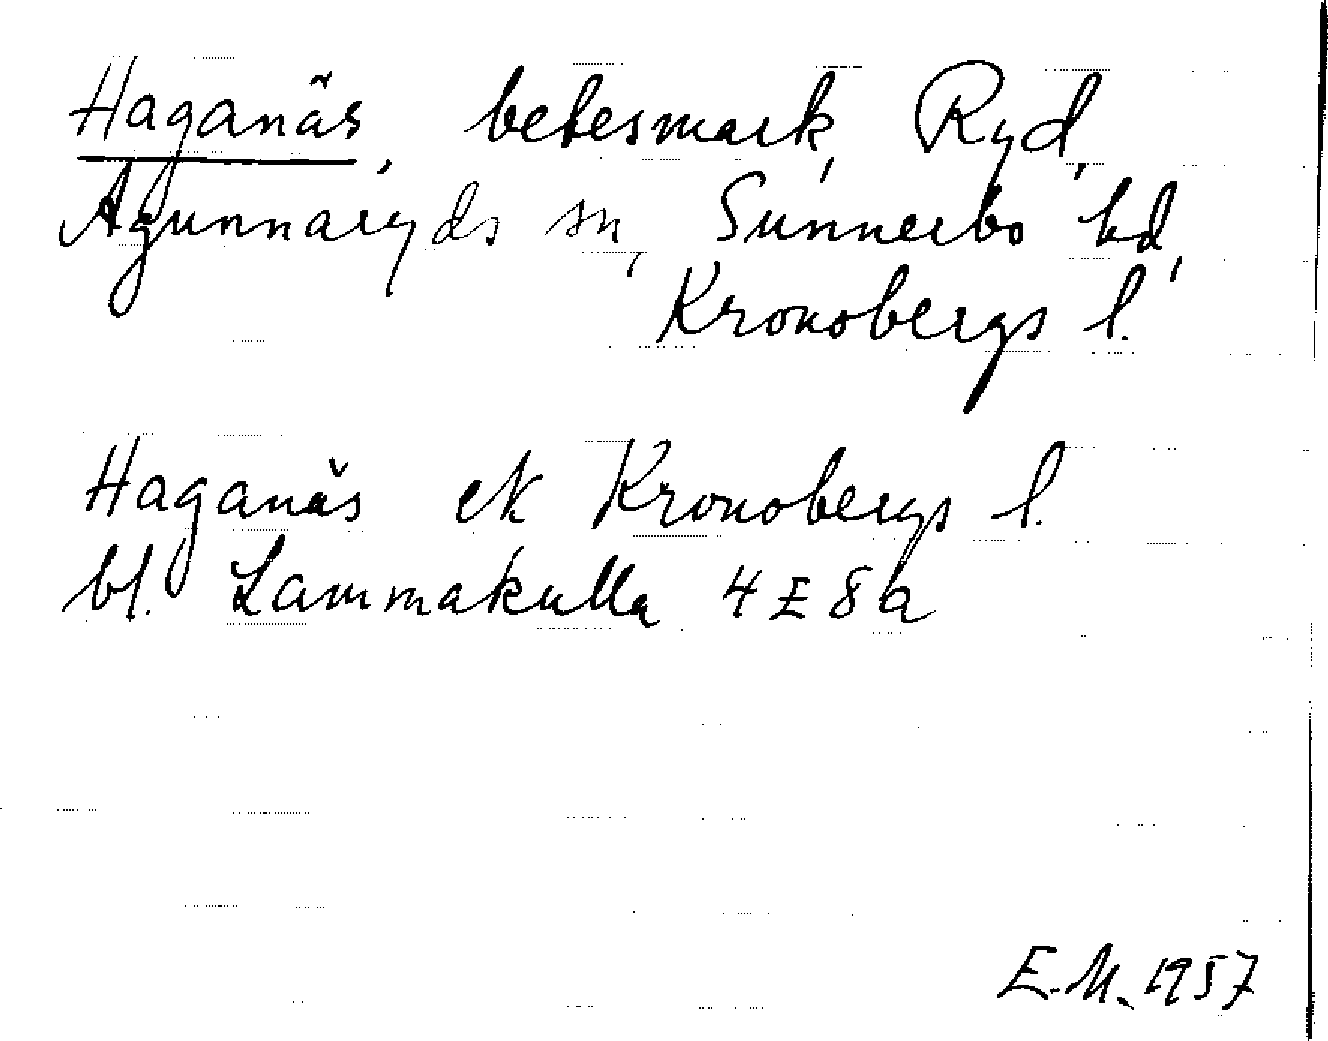 Haganäs, betesmark, Ryd,
Agunnaryds sn, Sunnerbo hd,
Kronobergs l.
Haganäs ek Kronobergs l.
bl. Lammakulla 4 E 8 a
E.M. 1957